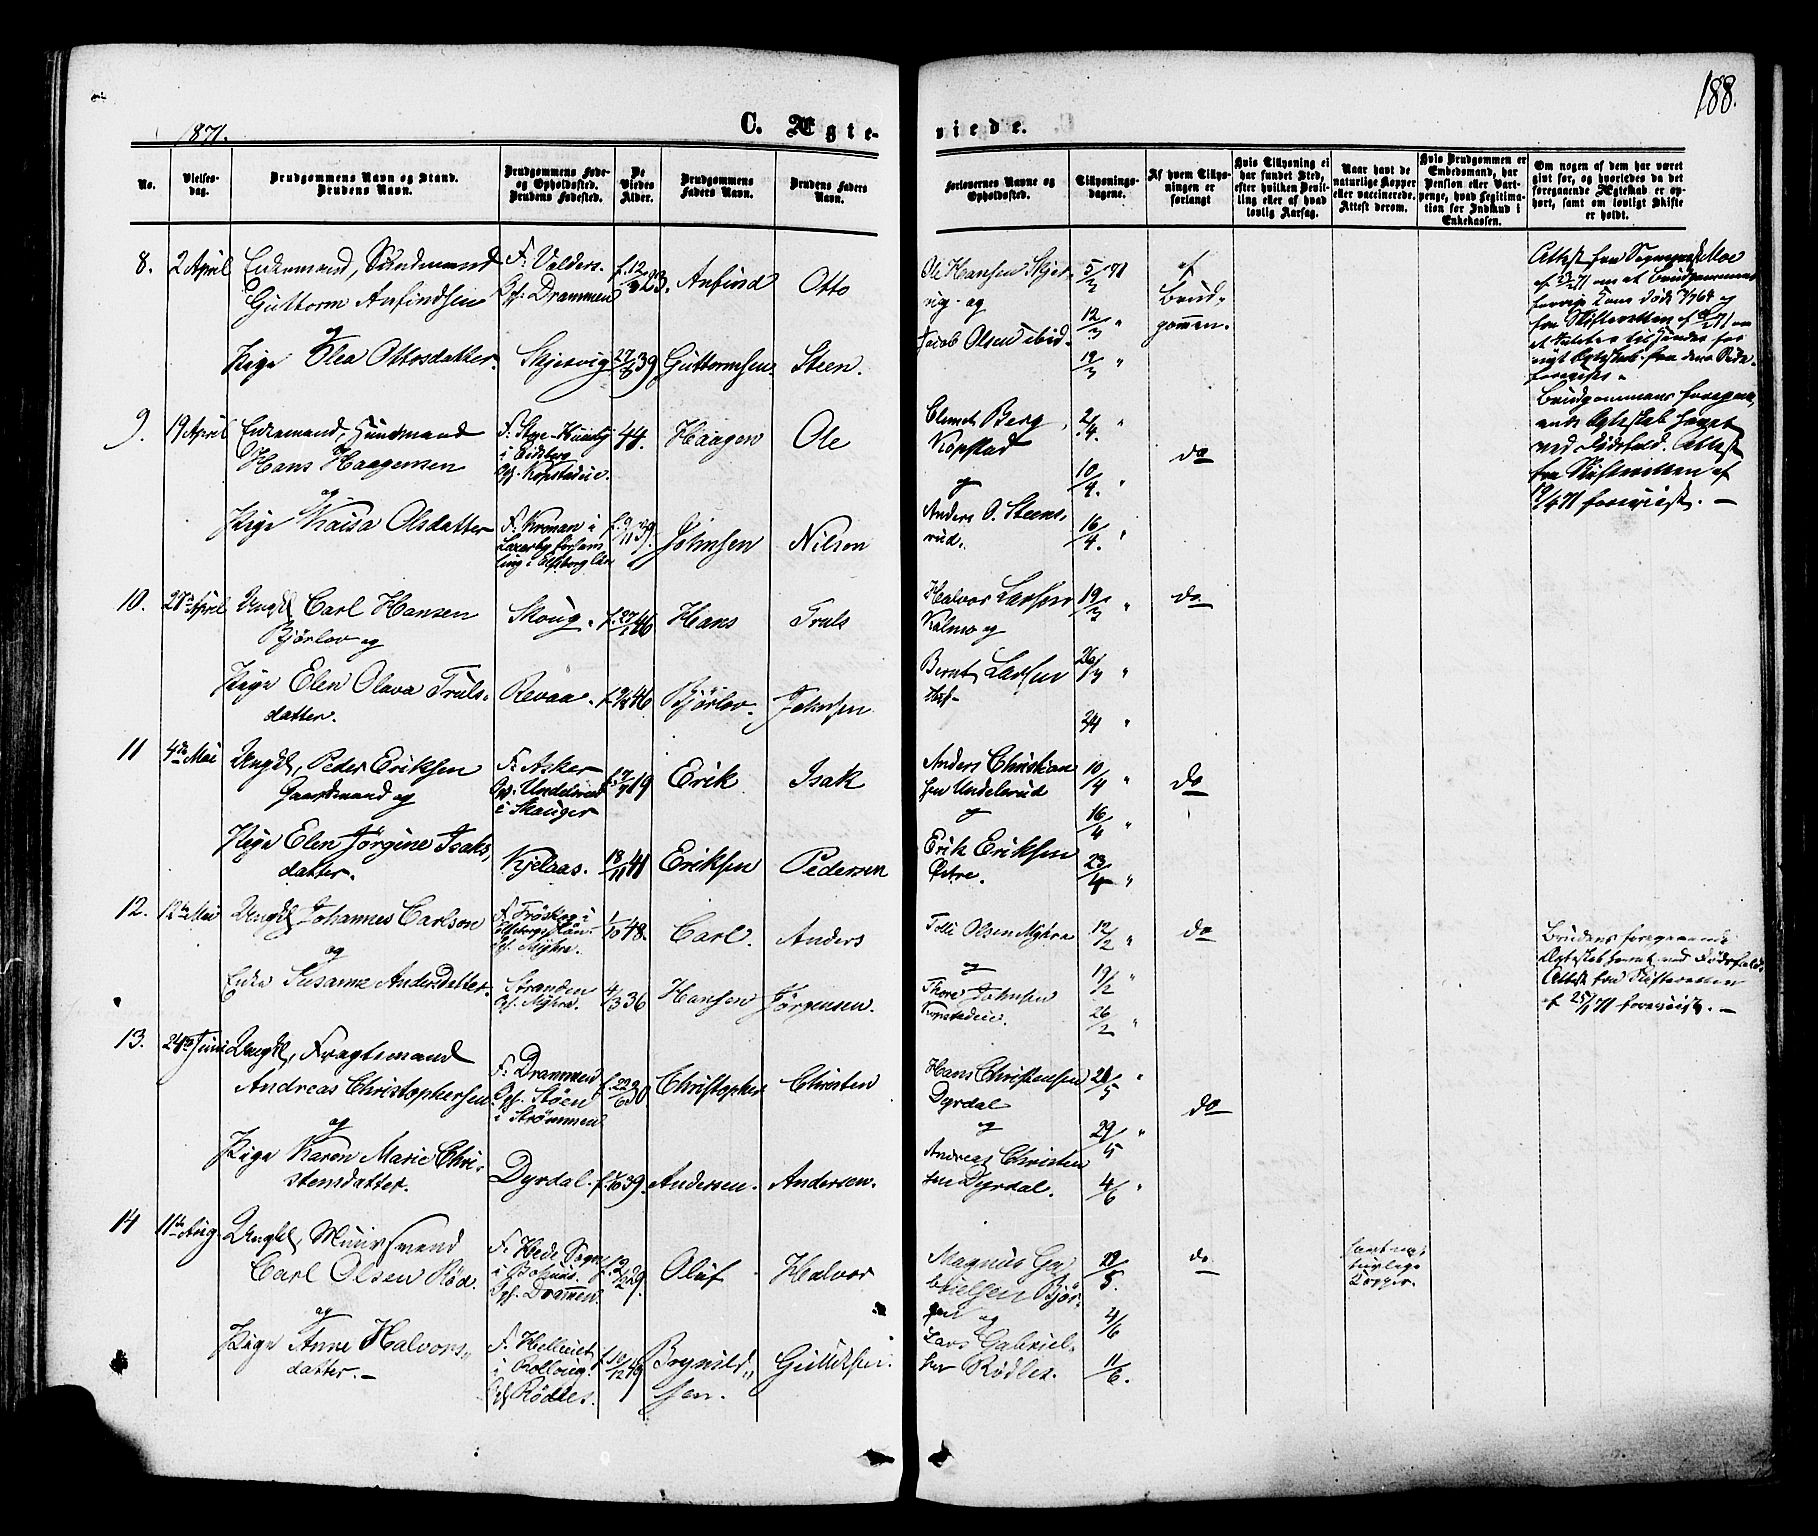 188.
1871.
C. Ægte-
viede.
No.
Vielses-
dag.
Brudgommens Navn og Stand.
Brudens Navn.
Brudgommens Føde-
og Opholdssted.
Brudens Fødested.
De
Viedes
Alder.
Brudgommens
Faders Navn.
Brudens Faders
Navn.
Forlovernes Navne og
Opholdssted.
Tillysnings-
dagene.
Af hvem Tillys-
ningen er
forlangt
Hvis Tillysning ei
har fundet Sted,
efter hvilken Bevil-
ling eller af hvad
lovlig Aarsag.
Naar havt de
naturlige Kopper
eller vaccinerede.
Attest derom.
Hvis Brudgommen er
Embedsmand, har
Pension eller Vart-
penge, hvad Legitima-
tion for Indskud i
Enkekassen.
Om nogen af dem har været
gift før, og hvorledes da det
foregaaende Ægteskab er op-
hørt, samt om lovligt Skifte
er holdt.
8. 2 April Enkemand,
Guttorm Anfindsen
og
Pige Elea Ottosdatter
F. Valders
Oph. Drammen
Skjesvig
f. 12/3 23.
27/8 39
Anfind
Guttormsen.
Otto
Steen.
Ole Hansen Skjes-
vig og
Jacob Olsen ibid.
5/3 71
12/3 "
19/3 "
af
Brud-
gommen.
9. 19 April Enkemand, Huusmand
Hans Haagensen
og
Pige Kaisa Olsdatter
i Eidsberg
Oph. Kopstadeie.
F. Kroman i
44.
Haagen
Johnsen
Ole
Nilsen
Clemet Berg
Kopstad
og
Anders O. Steens-
rud.
2/4. "
10/4. "
16/4. "
do
Brudgommens foregaa-
ende Ægteskab hævet
ved Dødsfald. Attest
fra Skifteretten af
forevist. —
10. 27de April Ungkl. Carl Hansen
Bjørlov og
Pige Elen Olava Truls-
datter.
Skoug.
Revaa.
f. 27/1 46
46
Hans
Bjørlov.
Truls
Johnsen
Halvor Larsen
Kalmo og
Bernt Larsen
19/3 "
26/3 "
2/4 "
do
11 4de Mai Ungkl, Peder Eriksen
Gaardmand og
Pige Elen Jørgine Isaks-
datter.
F. Asker
Oph. Undelsrud
i Skauger
Kjelaas.
19
18/11 41
Erik
Eriksen
Isak
Pedersen
Anders Christian
sen Undelsrud
og
Erik Eriksen
Østre.
10/4 "
16/4 "
23/4 "
do
12. 12te Mai Ungkl Johannes Carlson
og
Enke Susanne Andersdatter.
F. Frøskog i
Elfsborgs Län
Oph. Myhre.
Stranden
Oph. Myhre.
1/10 48.
4/3 36
Carl.
Hansen
Anders
Jørgensen.
Tolli Olsen Myhre
og
Thore Johnsen
Kopstadeie.
12/2 "
19/2 "
26/2 "
do
Brudens foregaaende
Ægteskab hævet ved Dødsfald.
Attest fra Skifteretten
af 25/1 71 forevist. —
13. 24de Juni Ungkl, Fragtemand
Andreas Christophersen
og
Pige Karen Marie Chri-
stensdatter.
F. Drammen
Oph. Støen
i Strømmen
Dyrdal.
f. 22/6 30
39.
Christopher
Andersen.
Christen
Andersen.
Hans Christensen
Dyrdal
og
Andreas Christen
sen Dyrdal.
21/5 "
29/5 "
4/6 "
do
14 11te Aug. Ungkl, Muursvend
Carl Olsen Röd.
og
Pige Anne Halvors-
datter. —
F. Hede Sogn
i Bohuus.
Oph. Drammen.
i Rollaug.
Oph. Rödles.
29.
f. 10/12 49
Oluf
Brynild-
sen.
Halvor
Gulliksen.
Magnus Ga
brielsen Bjør-
og
Lars Gabriel-
sen Rödles.
29/5.
4/6
11/6.
do
havt na-
turlige
Kopper.